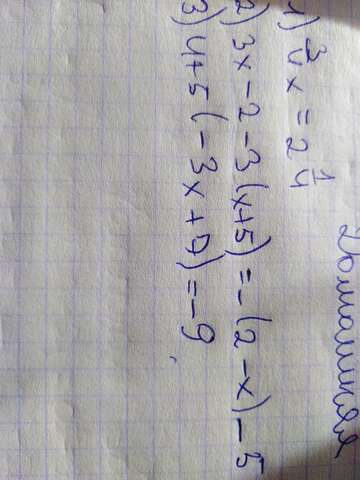 Домашняя
1) 3/4 x = 2 1/4
2) 3x - 2 - 3(x+5) = -(2 - x) - 5
3) 4+5(-3x+7) = -9